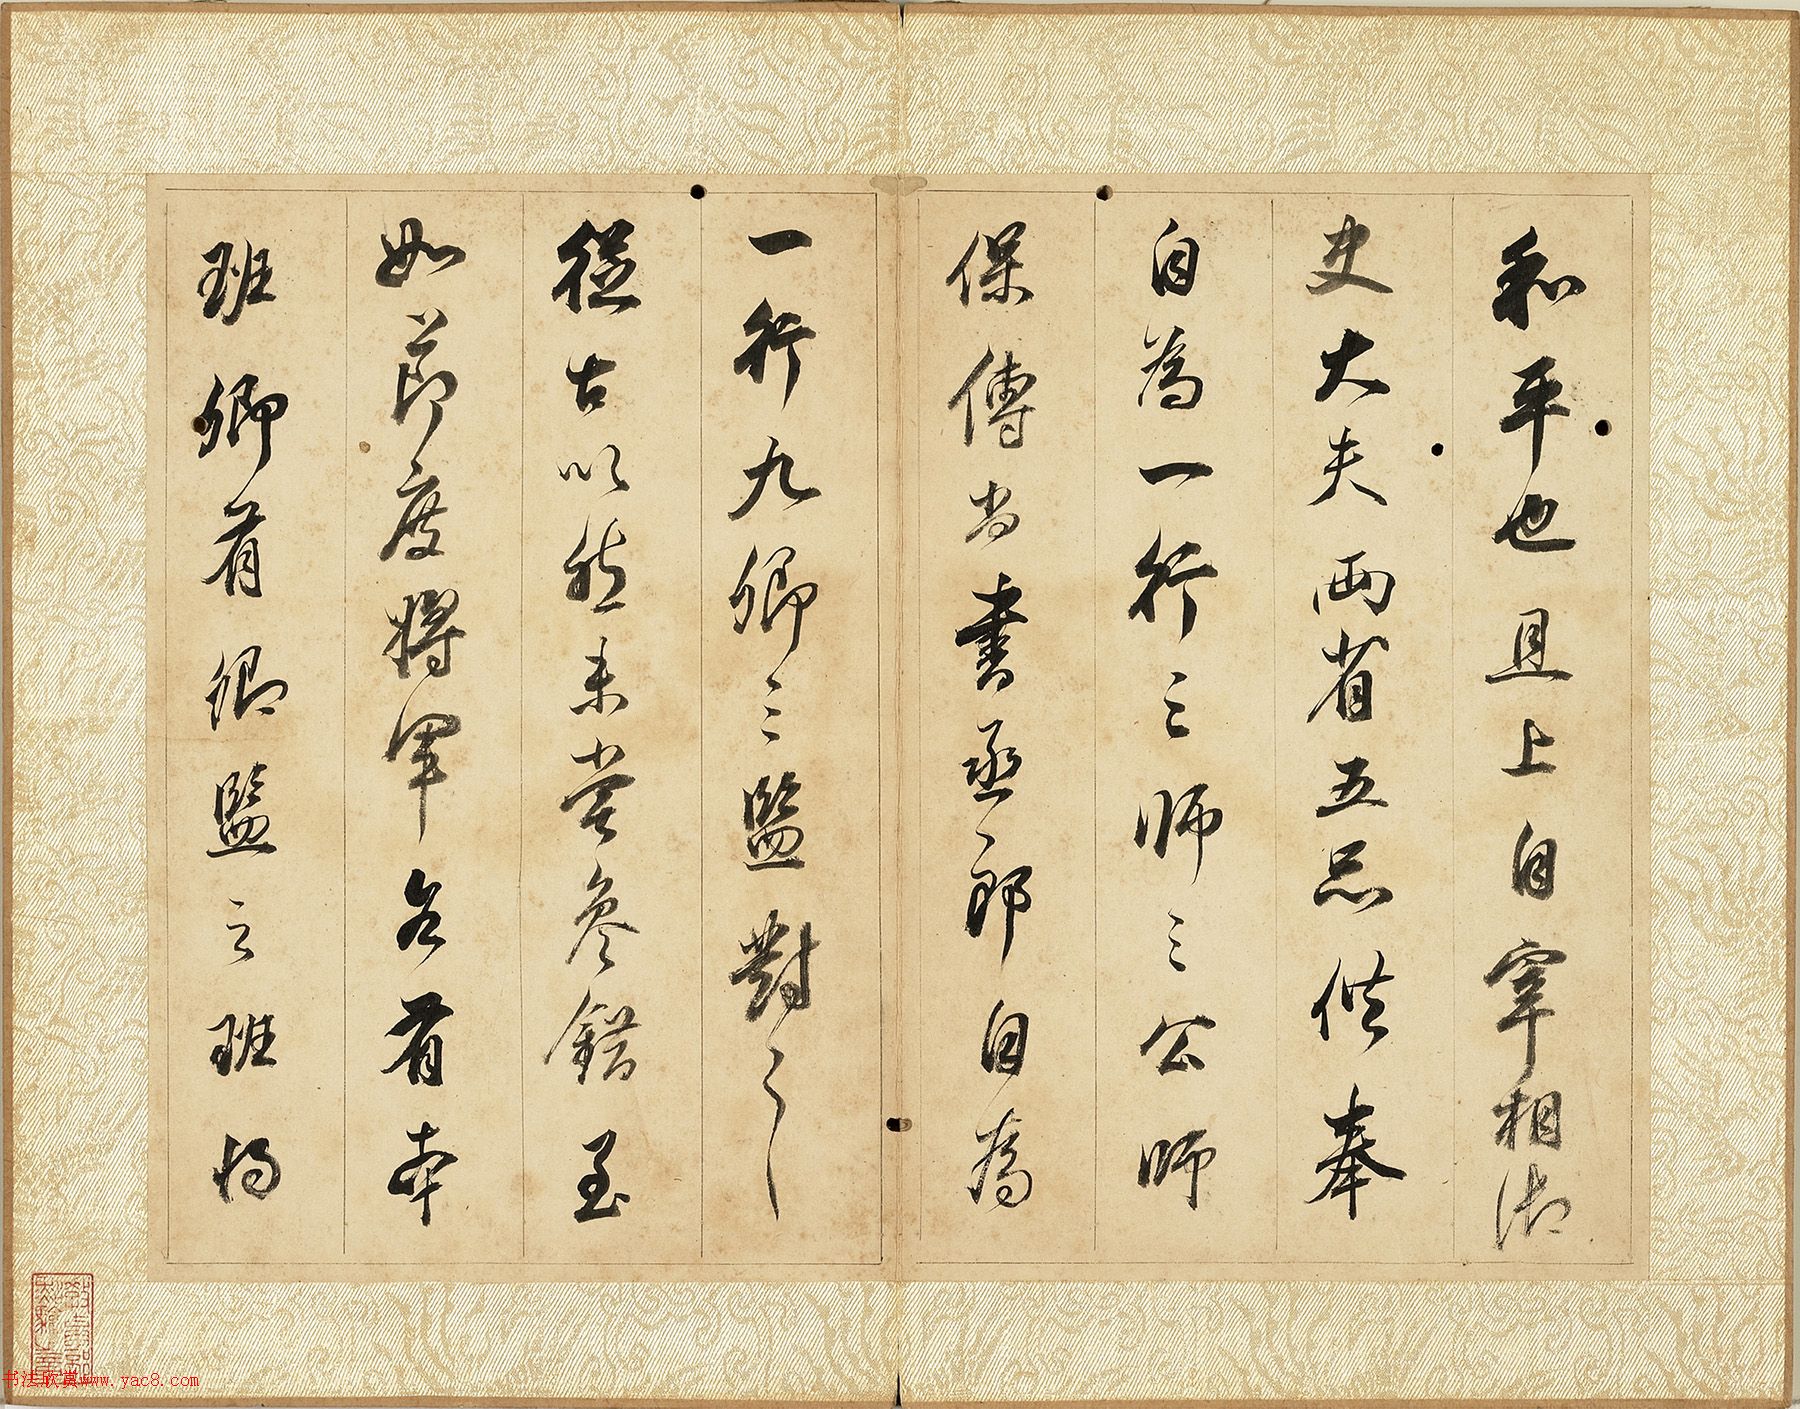 和平也且上自宰相御
史大夫兩省五品供奉
自為一行三師三公師
保傅尚書丞郎自為
一行九卿三監對之
從古以然未嘗參錯至
如節度將軍各有本
班卿有卿監之班將
书法欣赏www.yac8.com